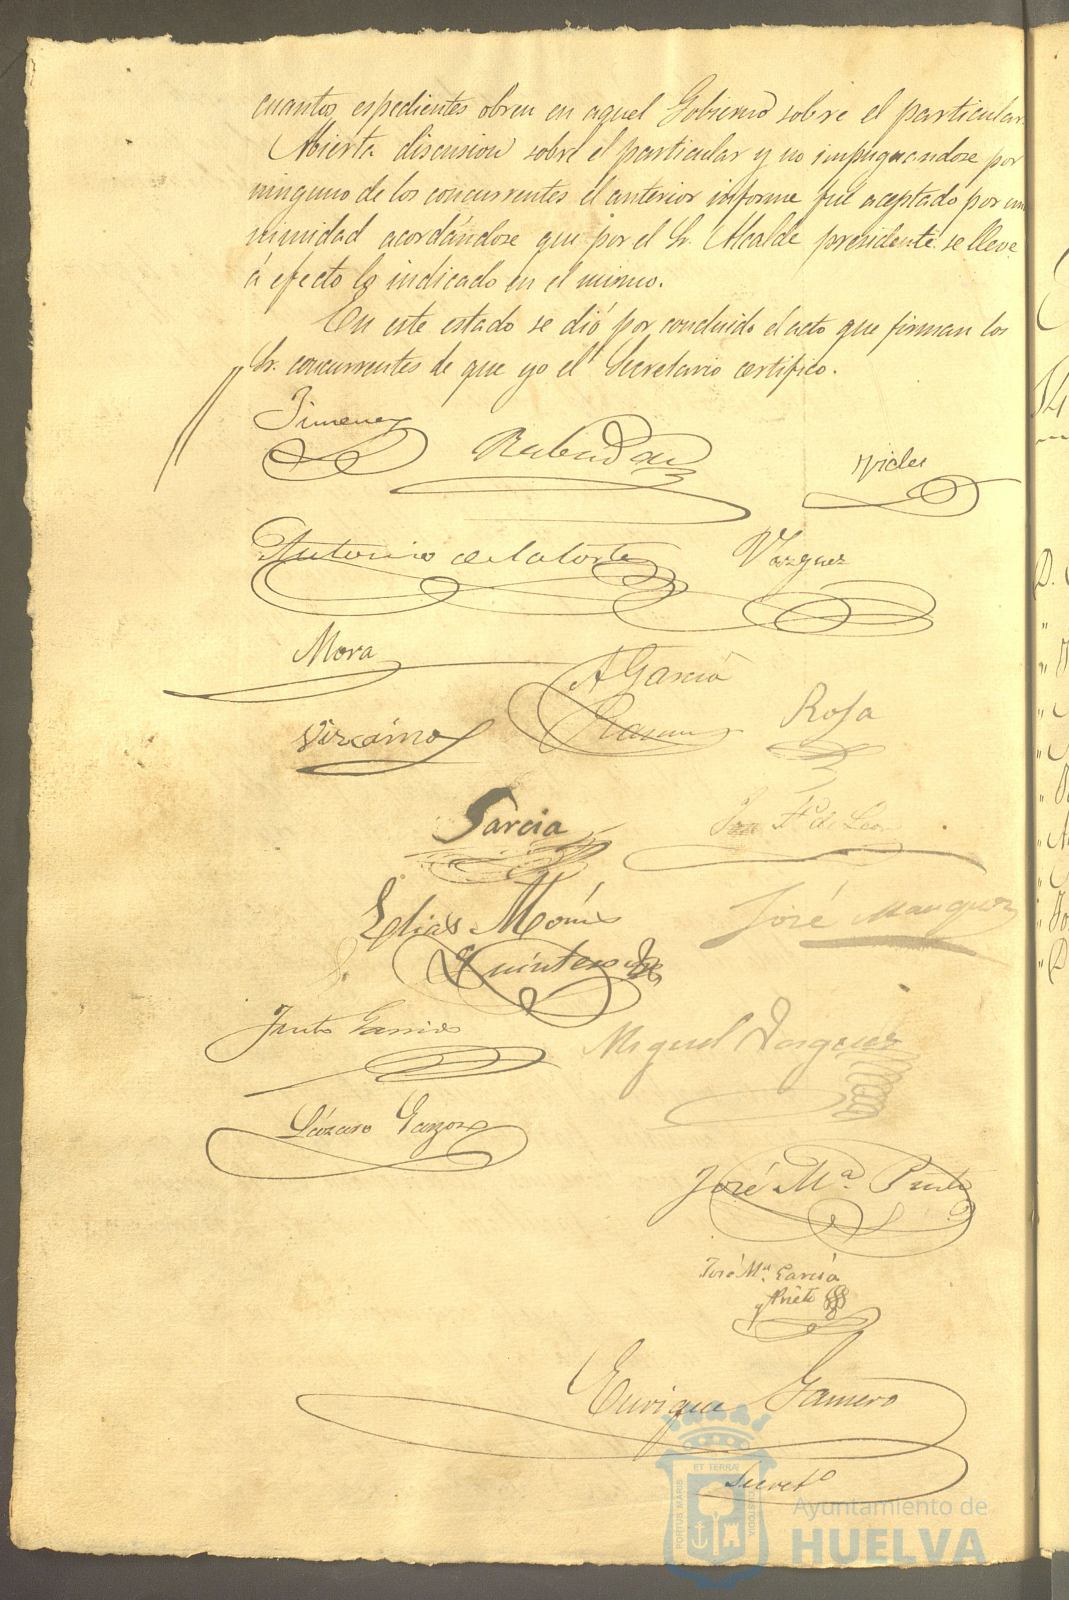 cuantos espedientes obren en aquel Gobierno sobre el particular.
Abierta discusion sobre el particular y no impugnandose por
ninguno de los concurrentes el anterior informe fué aceptado por una
nimidad acordándose que por el Sr. Alcalde presidente se lleve
á efecto lo indicado en el mismo.
En este estado se dió por concluido el acto que firman los
Sr. concurrentes de que yo el Secretario certifico.
Jimenez
Vides
Antonio de la Corte
Vazquez
Mora
A Garcia
Ramos
Rosa
Vizcaino
Garcia
de Leon
Elias Monis
Quintero
José Marquez
Justo Garrido
Miguel Vasquez
Lázaro Garzon
José Mª. Prieto
José Mª. Garcia
y Prieto
Enrique Gamero
Secretº
ET TERRÆ
PORTUS MARIS
CUSTODIA
Ayuntamiento de
HUELVA